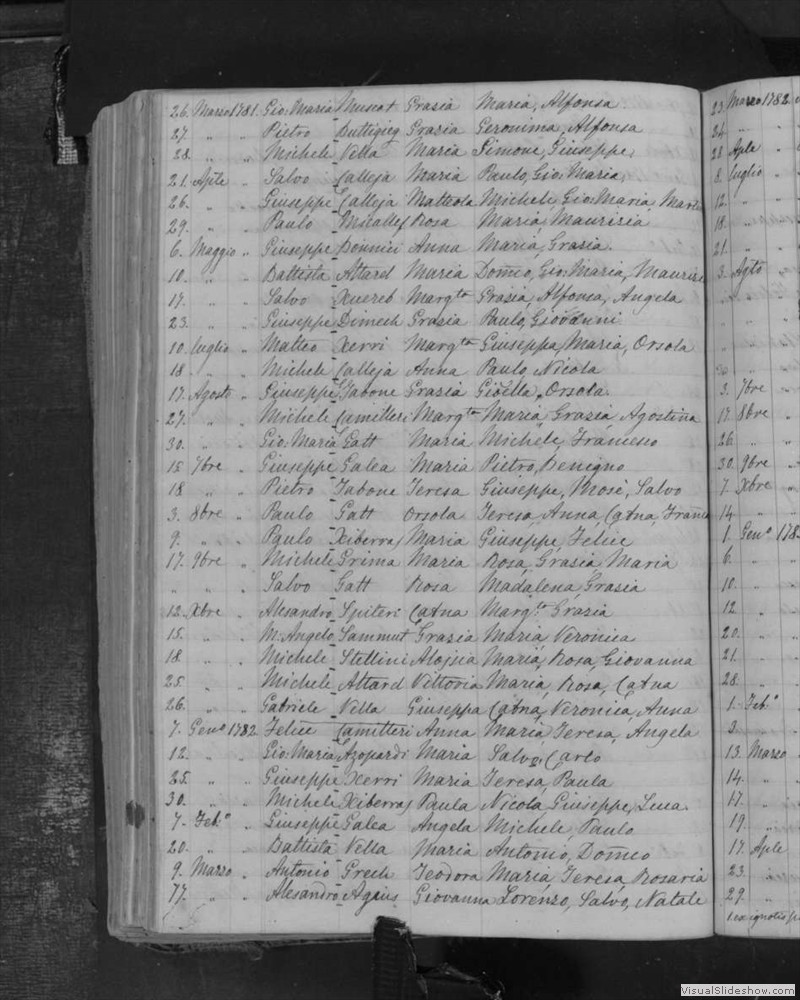 26. Marzo 1781. Gio: Maria Muscat Grazia Maria, Alfonsa
27. " " Pietro Buttigieg Grazia Geronima, Alfonsa
28. " " Michele Vella Maria Simone, Giuseppe,
21. Aple " Salvo Calleja Maria Paulo, Gio: Maria,
26. " " Giuseppe Calleja Matteola Michele, Gio: Maria,
29. " " Paulo Miccallef Rosa Maria, Maurizia
6. Maggio " Giuseppe Bonnici Anna Maria, Grazia.
10. " " Battista Attard Maria Dom̃co, Gio: Maria,
17. " " Salvo Xuereb Margta Grazia, Alfonsa, Angela
23. " " Giuseppe Dimech Grazia Paulo, Giovanni
10. Luglio " Matteo Xerri Margta Giuseppa, Maria, Orsola
18 " " Michele Calleja Anna Paulo, Nicola
17. Agosto " Giuseppe Tabone Grazia Orsola.
27. " " Michele Camilleri Margta Maria, Grazia, Agostina
30. " " Gio: Maria Gatt Maria Michele, Francesco
15. 7bre " Giuseppe Galea Maria Pietro, Benigno
18 " " Pietro Tabone Teresa Giuseppe, Mosè, Salvo
3. 8bre " Paulo Gatt Orsola Teresa, Anna, Catna,
9. " " Paulo Xiberras Maria Giuseppe, Felice
17. 9bre " Michele Grima Maria Rosa, Grazia, Maria
" " " Salvo Gatt Rosa Madalena, Grazia
12. Xbre " Alesandro Spiteri Catna Margta Grazia
15. " " M: Angelo Sammut Grazia Maria, Veronica
18. " " Michele Stellini Aloisia Maria, Rosa, Giovanna
25. " " Michele Attard Vittoria Maria, Rosa, Catna
26. " " Gabriele Vella Giuseppa Catna, Veronica, Anna
7. Geno 1782. Felice Camilleri Anna Maria, Teresa, Angela
12. " " Gio: Maria Azopardi Maria Salvo, Carlo
25. " " Giuseppe Xerri Maria Teresa, Paula
30. " " Michele Xiberras Paula Nicola, Giuseppe, Luca.
7. Febo " Giuseppe Galea Angela Michele, Paulo
20. " " Battista Vella Maria Antonio, Dom̃co
9. Marzo " Antonio Grech Teodora Maria, Teresa, Rosaria
17. " " Alesandro Agius Giovanna Lorenzo, Salvo, Natale
23. Marzo 1782
24. " "
28. Aple "
8. Luglio "
12. " "
18. " "
21. " "
3. Agto "
3. 7bre "
17. 8bre "
26. " "
30. 9bre "
7. Xbre "
14. "
1. Geno 178
6. "
10. "
12. "
20. "
21. "
28. "
1. Febo
3. "
13. Marzo
14. "
17. "
19. "
17. Aple
23. "
29. "
VisualSlideshow.com